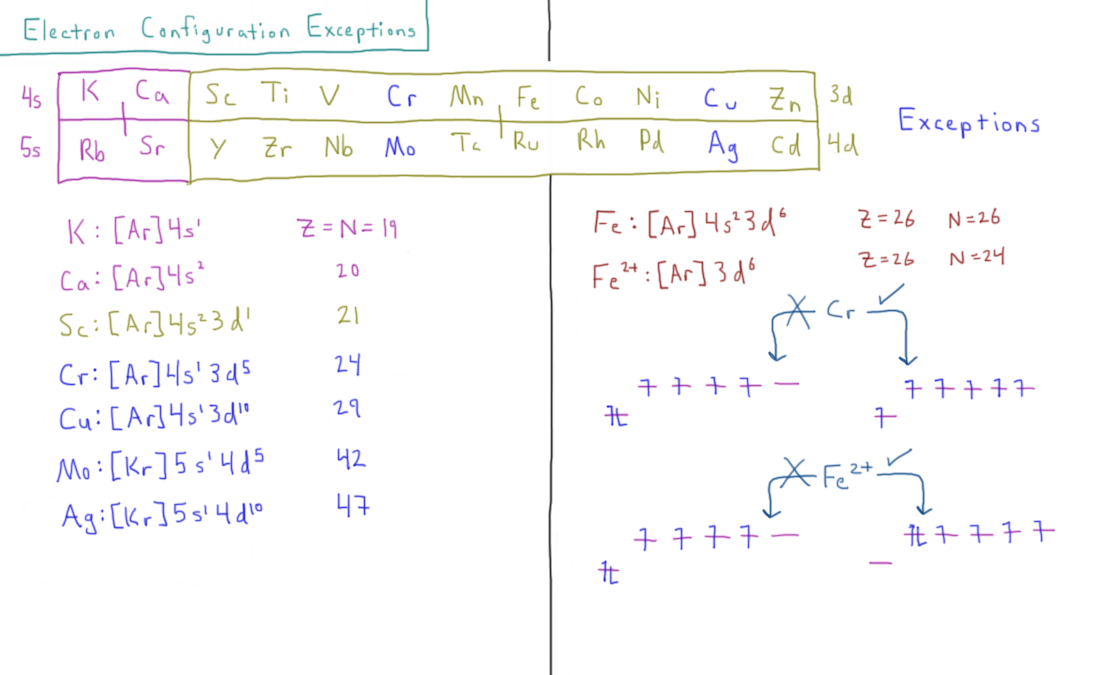 Electron Configuration Exceptions
4s K Ca Sc Ti V Cr Mn Fe Co Ni Cu Zn 3d
Exceptions
5s Rb Sr Y Zr Nb Mo Tc Ru Rh Pd Ag Cd 4d
K: [Ar]4s¹ Z=N=19
Ca: [Ar]4s² 20
Sc: [Ar]4s²3d¹ 21
Cr: [Ar]4s¹3d⁵ 24
Cu: [Ar]4s¹3d¹⁰ 29
Mo: [Kr]5s¹4d⁵ 42
Ag: [Kr]5s¹4d¹⁰ 47
Fe: [Ar]4s²3d⁶ Z=26 N=26
Fe²⁺: [Ar]3d⁶ Z=26 N=24
Cr
Fe²⁺